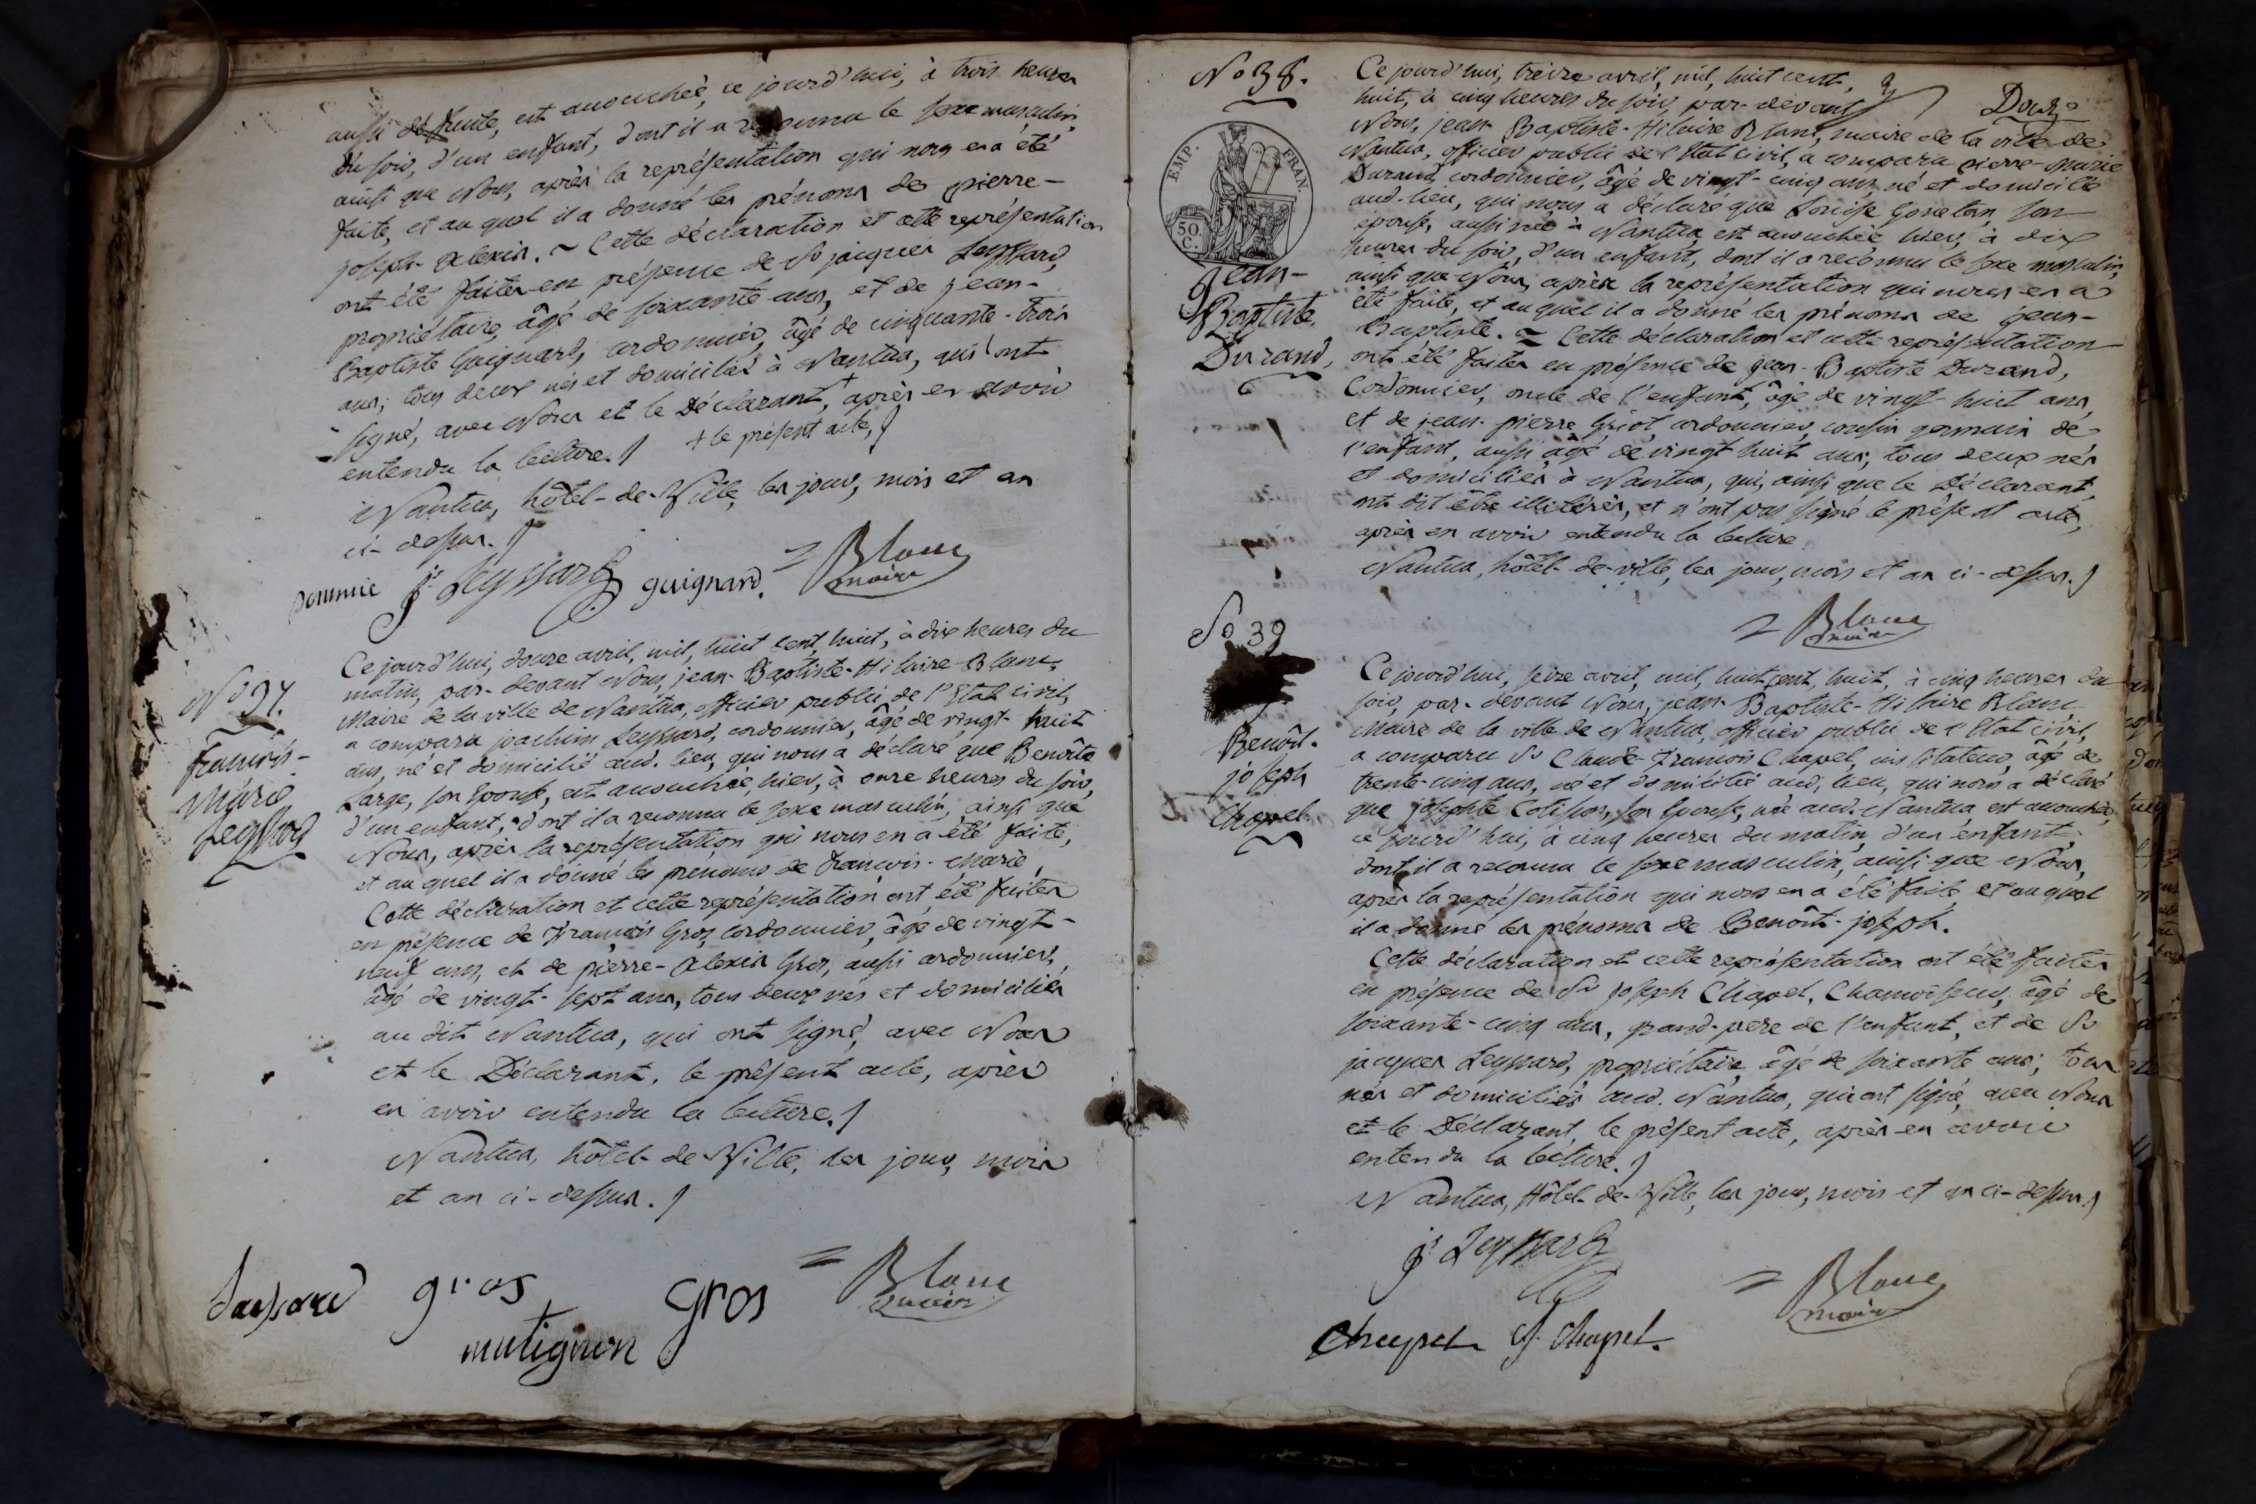 aussi de suite, est accouchée, ce jourd'hui, à trois heures
du soir, d'un enfant, dont il a reconnu le sexe masculin,
ainsi que Nous, après la représentation qui nous en a été
faite, et au quel il a donné les prénoms de pierre-
joseph-alexis. ~ Cette déclaration et cette représentation
ont été faites en présence de Sr jacques Leyssard,
propriétaire, âgé de soixante ans, et de jean-
Baptiste Guignard, cordonnier, âgé de cinquante-trois
ans; tous deux nés et domiciliés à Nantua, qui ont
signé, avec Nous et le Déclarant, + après en avoir
entendu la lecture. + le présent acte,
Nantua, hôtel-de-Ville, les jour, mois et an
ci-dessus.
pommie js Leyssard guignard = Blanc
maire
No 37.
françois-
Marie
Leyssard
Ce jourd'hui, douze avril, mil, huit cent, huit, à dix heures du
matin, par-devant Nous, jean-Baptiste-Hilaire Blanc,
Maire de la ville de Nantua, officier public de l'Etat civil,
a comparu joachim Leyssard, cordonnier, âgé de vingt-huit
ans, né et domicilié aud. lieu, qui nous a déclaré que Benoîte
Large, son Epouse, est accouchée, hier, à onze heures du soir,
d'un enfant, dont il a reconnu le sexe masculin, ainsi que
Nous, après la représentation qui nous en a été faite,
et au quel il a donné les prénoms de françois-Marie.
Cette déclaration et cette représentation ont été faites
en présence de françois Gros, cordonnier, âgé de vingt-
neuf ans, et de pierre-alexis Gros, aussi cordonnier,
âgé de vingt-sept ans, tous deux nés et domiciliés
au dit Nantua, qui ont signé, avec Nous
et le Déclarant, le présent acte, après
en avoir entendu la lecture.
Nantua, hôtel-de-Ville, les jour, mois
et an ci-dessus.
gros Gros = Blanc
maire
mutignon
No 38.
EMP. FRAN.
50 C.
Jean-
Baptiste
Durand,
Ce jourd'hui, treize avril, mil, huit cent,
huit, à cinq heures du soir, par-devant
Nous, jean-Baptiste-Hilaire Blanc, maire de la ville de
Nantua, officier public de l'Etat civil, a comparu pierre-Marie
Durand, cordonnier, âgé de vingt-cinq ans, né et domicilié
aud. lieu, qui nous a déclaré que Louise Gonetan, son
épouse, aussi née à Nantua, est accouchée hier, à dix
heures du soir, d'un enfant, dont il a reconnu le sexe masculin,
ainsi que Nous, après la représentation qui nous en a
été faite, et au quel il a donné les prénoms de jean-
Baptiste. ~ Cette déclaration et cette représentation
ont été faites en présence de jean-Baptiste Durand,
Cordonnier, oncle de l'enfant, âgé de vingt-huit ans,
et de jean-pierre Griot, cordonnier, cousin germain de
l'enfant, aussi âgé de vingt huit ans; tous deux nés
et domiciliés à Nantua, qui, ainsi que le Déclarant,
ont dit être illitérés, et n'ont pas signé le présent acte,
après en avoir entendu la lecture
Nantua, hôtel-de-ville, les jour, mois et an ci-dessus.
= Blanc
maire
No 39
Benoît-
joseph
Chapel
Ce jourd'hui, seize avril, mil, huit cent, huit, à cinq heures du
soir, par-devant Nous, jean-Baptiste-Hilaire Blanc
Maire de la ville de Nantua, officier public de l'Etat civil,
a comparu Sr Claude-françois Chapel, instituteur, âgé de
trente-cinq ans, né et domicilié aud. lieu, qui nous a déclaré
que josephte Cotisson, son Epouse, née aud. Nantua est accouchée,
ce jourd'hui, à cinq heures du matin, d'un enfant,
dont il a reconnu le sexe masculin, ainsi que Nous,
après la représentation qui nous en a été faite, et au quel
il a donné les prénoms de Benoît-joseph.
Cette déclaration et cette représentation ont été faites
en présence de Sr joseph Chapel, Chamoiseur, âgé de
soixante-cinq ans, grand-père de l'enfant, et de Sr
jacques Leyssard, propriétaire, âgé de soixante ans; tous
nés et domiciliés aud. Nantua, qui ont signé, avec Nous
et le Déclarant, le présent acte, après en avoir
entendu la lecture.
Nantua, Hôtel-de-Ville, les jour, mois et an ci-dessus.
js Leyssard = Blanc
maire
Chapel Chapel.